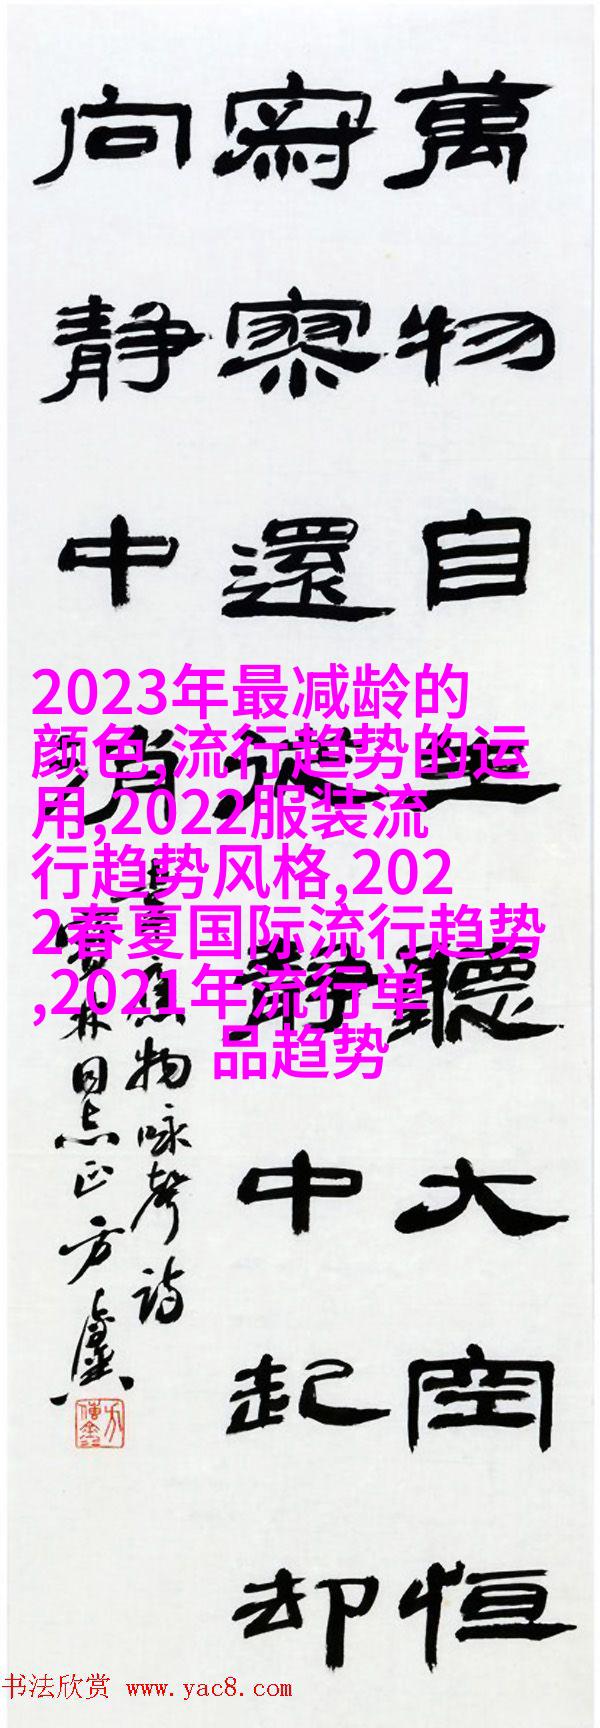 萬物自生聽大空恒
寂寥還從静中起却
向静中消
韋應物咏聲诗
林同志正方鑫
2023年最减龄的
颜色,流行趋势的运
用,2022服装流
行趋势风格,202
2春夏国际流行趋势
,2021年流行单
品趋势
书法欣赏 www.yac8.com